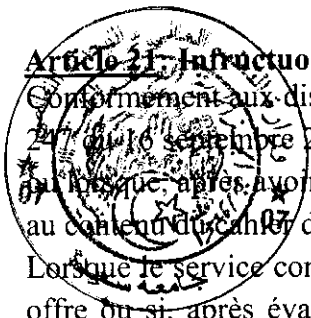 Article 21: Infructuo
Conformement aux dis
247 du 16 septembre 2
ou lorsque, après avoir
au contenu du cahier d
Lorsque le service con
offre ou si, après éva
07
07
جامعة